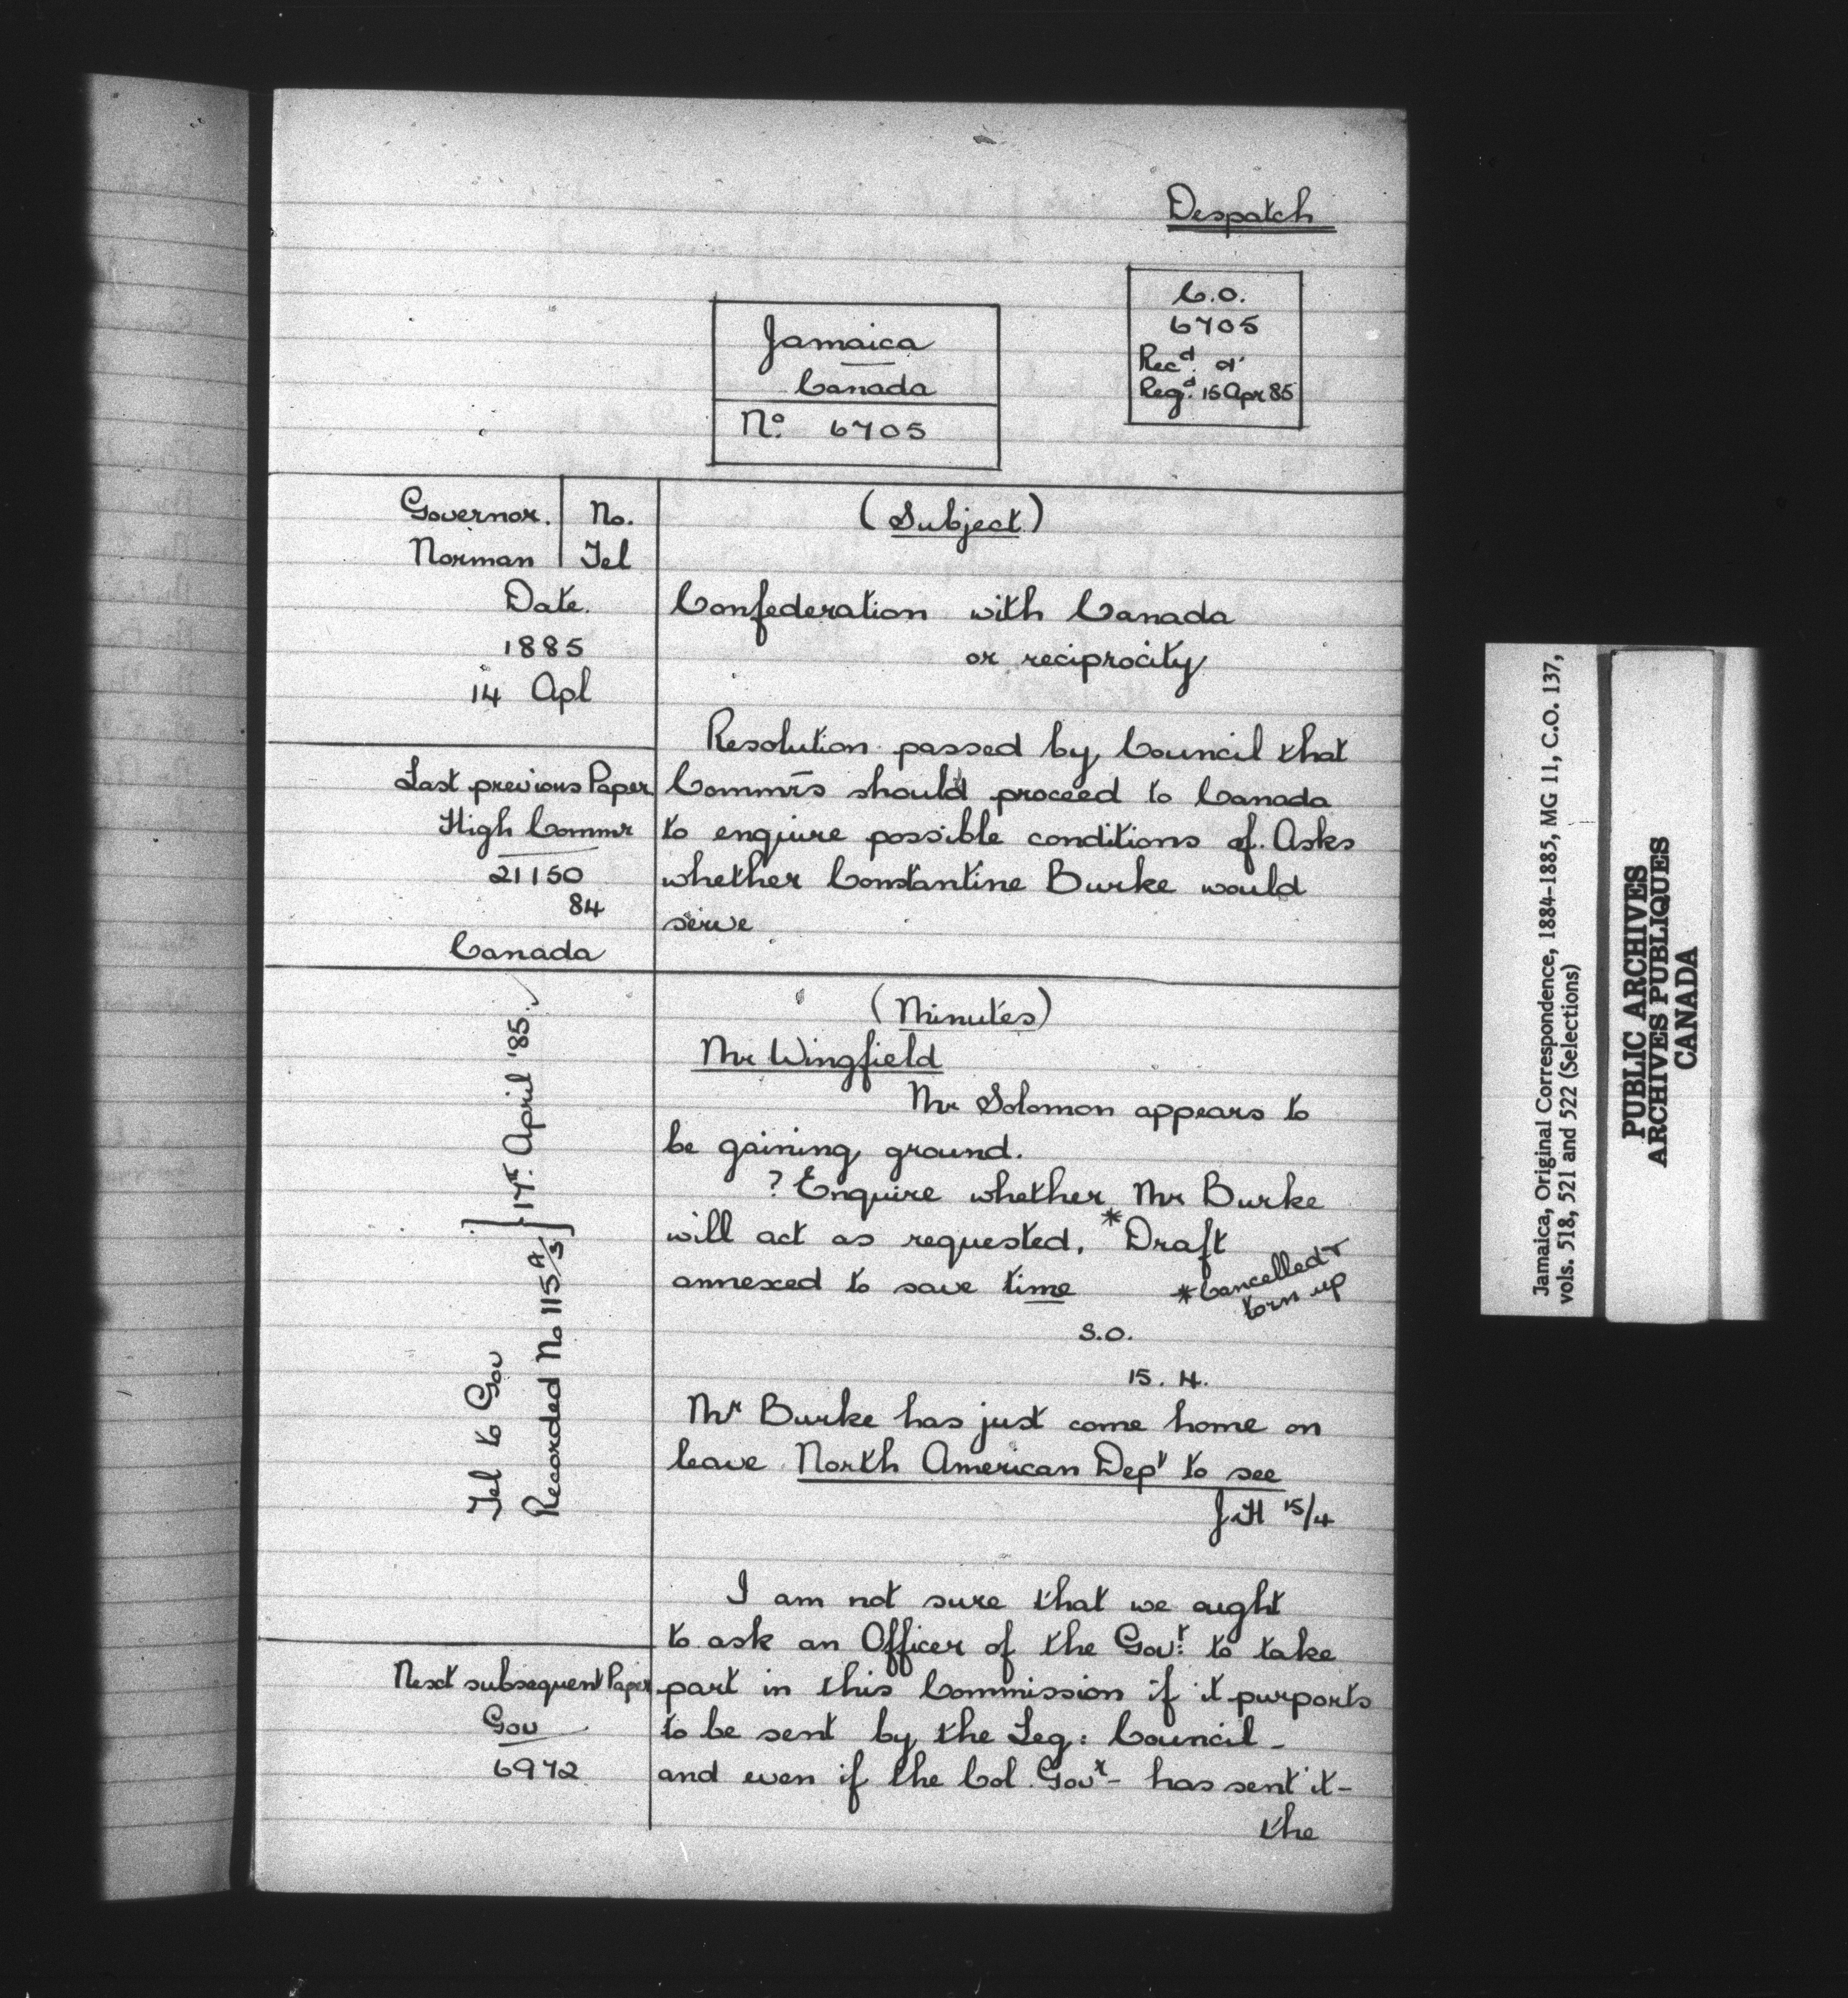 Despatch
C.O.
6705
Recd. &
Regd. 15 Apr 85
Jamaica
Canada
No. 6705
Governor. No.
Norman Tel
Date.
1885
14 Apl
(Subject)
Confederation with Canada
or reciprocity
Resolution passed by Council that
Commrs should proceed to Canada
to enquire possible conditions of. Asks
whether Constantine Burke would
serve
Last previous Paper
High Commr
21150
84
Canada
(Minutes)
Mr Wingfield
Mr Solomon appears to
be gaining ground.
? Enquire whether Mr Burke
will act as requested. * Draft
annexed to save time
* Cancelled &
torn up
S.O.
15. 4.
Mr Burke has just come home on
leave North American Dept to see
15/4
I am not sure that we ought
to ask an Officer of the Govt: to take
part in this Commission if it purports
to be sent by the Leg: Council -
and even if the Col. Govt - has sent it -
the
Tel to Gov
Recorded No 115A/S } 17t. April '85.
Next subsequent Paper
Gov
6972
Jamaica, Original Correspondence, 1884-1885, MG 11, C.O. 137,
vols. 518, 521 and 522 (Selections)
PUBLIC ARCHIVES
ARCHIVES PUBLIQUES
CANADA